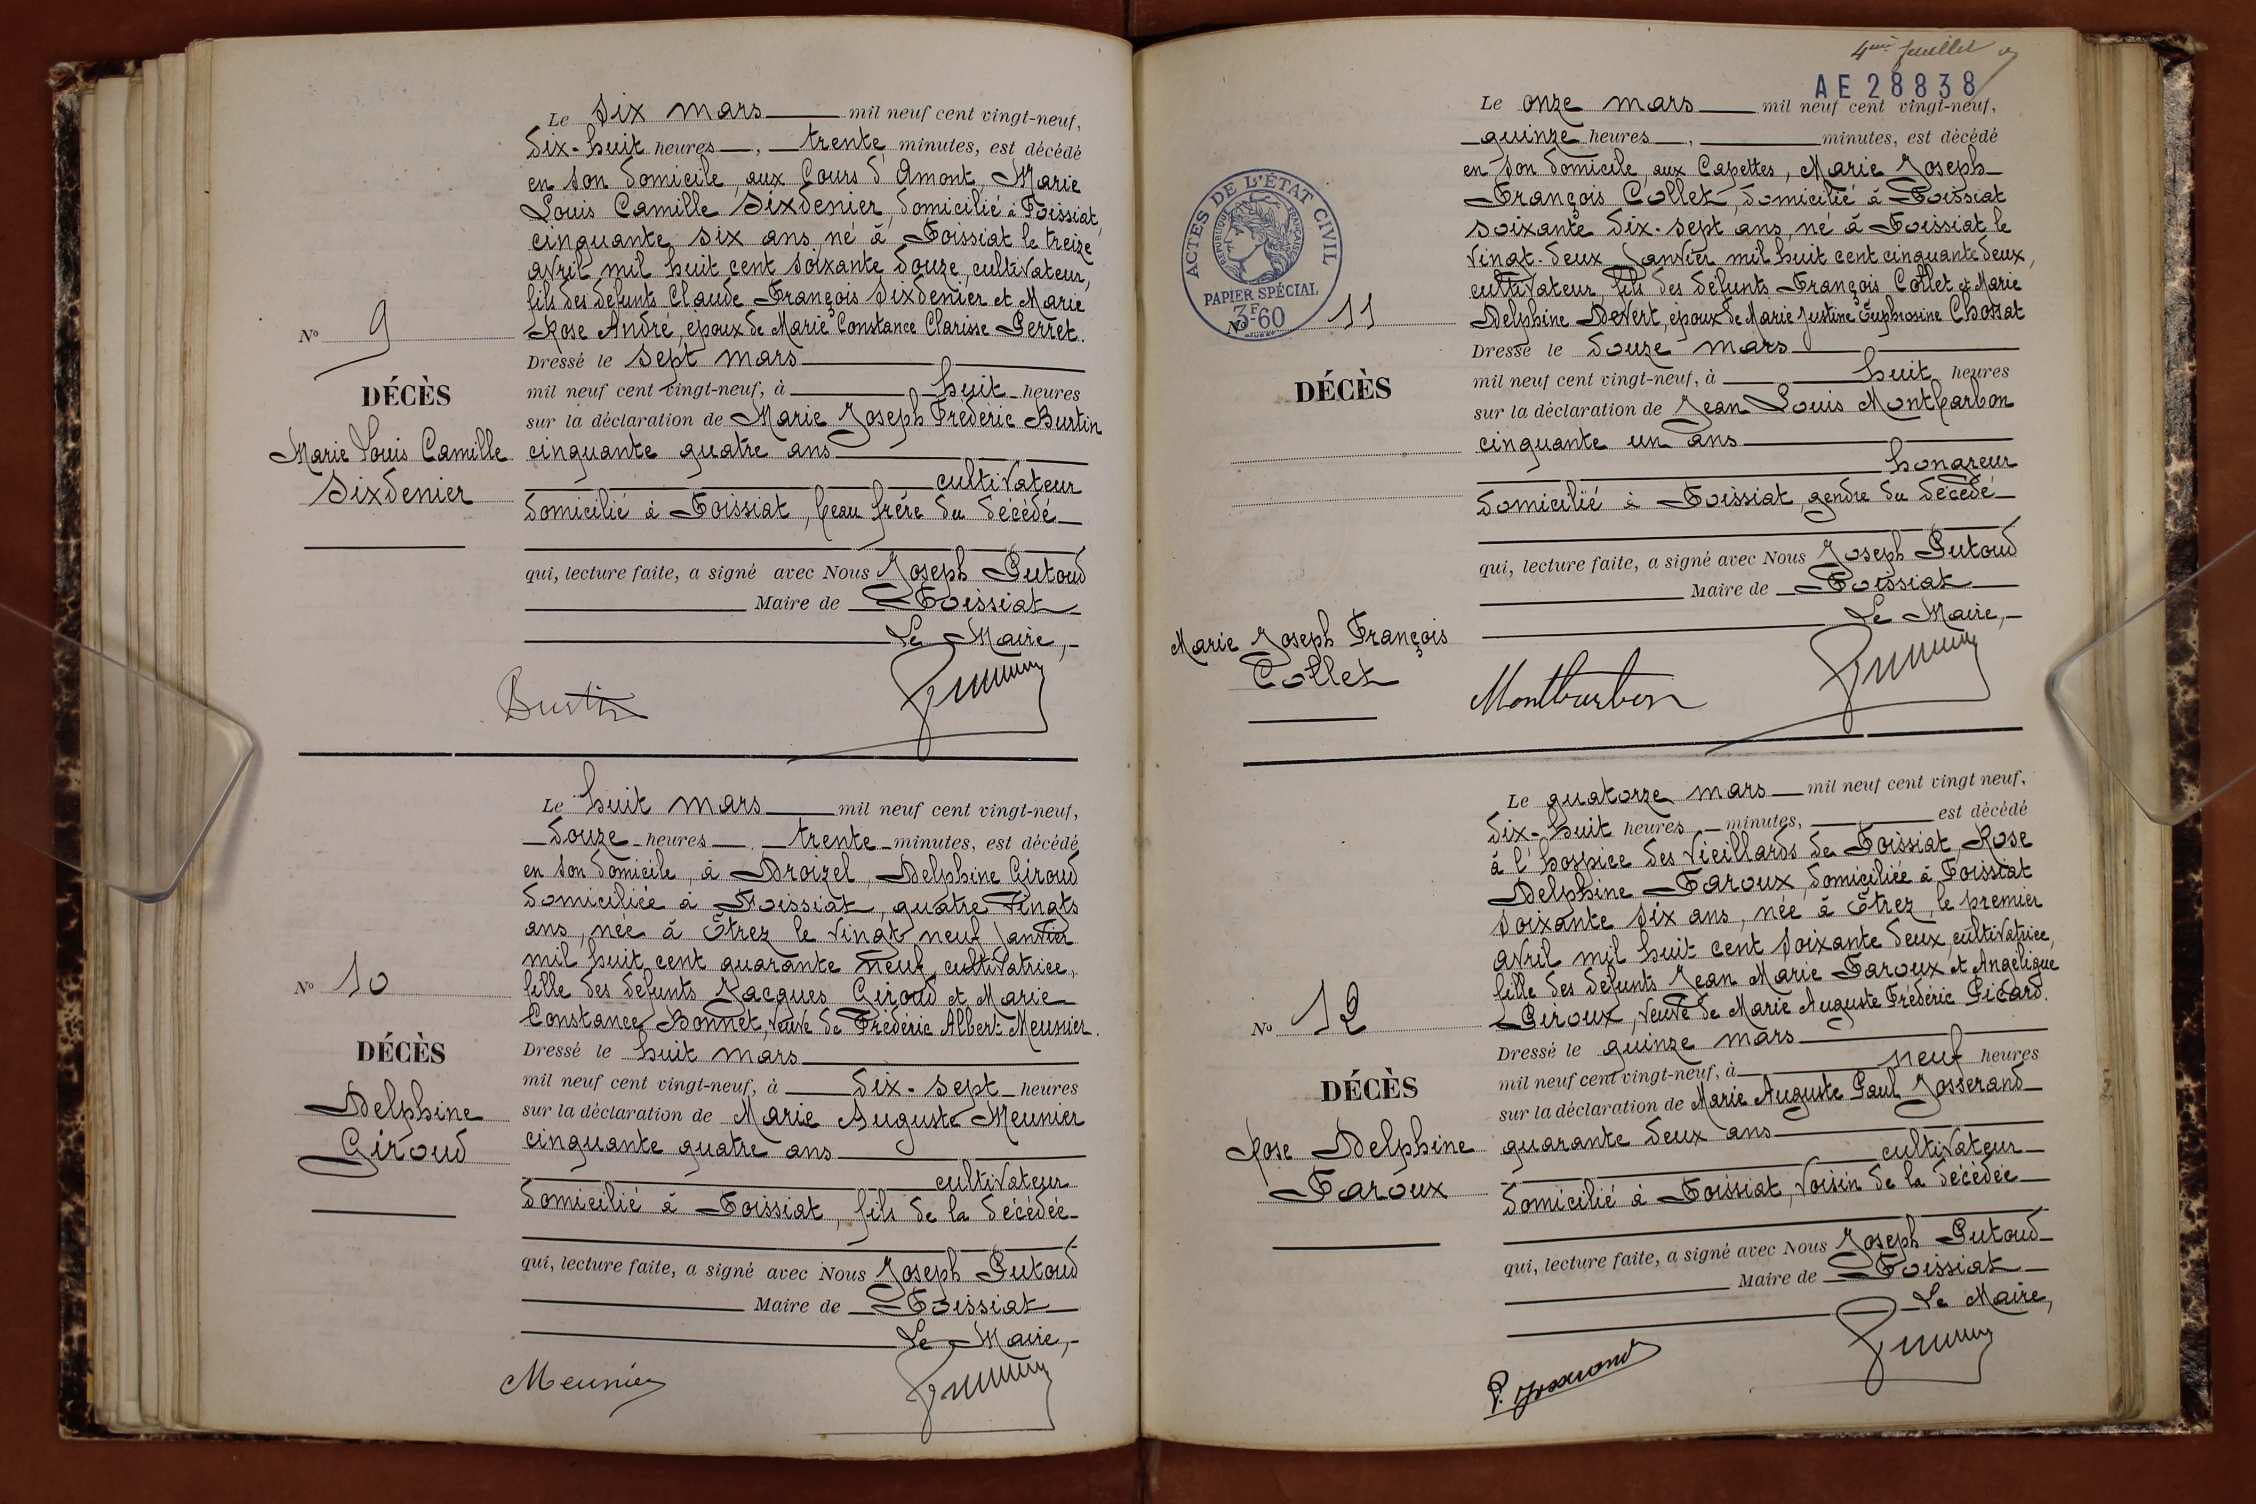 Le six mars mil neuf cent vingt-neuf,
dix-huit heures, trente minutes, est décédé
en son domicile, aux Cours d'Amont, Marie
Louis Camille Sixdenier, domicilié à Foissiat,
cinquante six ans, né à Foissiat le treize
avril mil huit cent soixante douze, cultivateur,
fils des défunts Claude François Sixdenier et Marie
Rose André, époux de Marie Constance Clarisse Perret.
No 9
Dressé le sept mars
mil neuf cent vingt-neuf, à huit heures
DÉCÈS
sur la déclaration de Marie Joseph Frédéric Burtin
Marie Louis Camille
cinquante quatre ans
Sixdenier
cultivateur
domicilié à Foissiat, beau frère du décédé
qui, lecture faite, a signé avec Nous Joseph Putoud
Maire de Foissiat
Le Maire,
Burtin
Le huit mars mil neuf cent vingt-neuf,
douze heures, trente minutes, est décédé
en son domicile, à Droizel, Delphine Giroud
domiciliée à Foissiat, quatre vingts
ans, née à Étrez le vingt neuf janvier
mil huit cent quarante neuf, cultivatrice,
No 10
fille des défunts Jacques Giroud et Marie
Constance Bonnet, veuve de Frédéric Albert Meunier.
DÉCÈS
Dressé le huit mars
mil neuf cent vingt-neuf, à dix-sept heures
Delphine
sur la déclaration de Marie Auguste Meunier
Giroud
cinquante quatre ans
cultivateur
domicilié à Foissiat, fils de la décédée
qui, lecture faite, a signé avec Nous Joseph Putoud
Maire de Foissiat
Le Maire,
Meunier
4me feuillet
AE 28838
Le onze mars mil neuf cent vingt-neuf,
quinze heures, minutes, est décédé
en son domicile, aux Capettes, Marie Joseph
François Collet, domicilié à Foissiat
soixante dix-sept ans, né à Foissiat le
vingt-deux janvier mil huit cent cinquante deux,
cultivateur, fils des défunts François Collet et Marie
Delphine Devert, époux de Marie Justine Euphrosine Chossat
ACTES DE L'ÉTAT CIVIL
REPUBLIQUE FRANÇAISE
PAPIER SPÉCIAL
3F60
No 11
Dressé le douze mars
DÉCÈS
mil neuf cent vingt-neuf, à huit heures
sur la déclaration de Jean Louis Montbarbon
cinquante un ans
hongreur
domicilié à Foissiat, gendre du décédé
qui, lecture faite, a signé avec Nous Joseph Putoud
Maire de Foissiat
Le Maire,
Marie Joseph François
Collet
Montbarbon
Le quatorze mars mil neuf cent vingt neuf,
dix-huit heures minutes, est décédé
à l'hospice des vieillards de Foissiat, Rose
Delphine Faroux, domiciliée à Foissiat
soixante six ans, née à Étrez, le premier
avril mil huit cent soixante deux, cultivatrice,
fille des défunts Jean Marie Faroux et Angélique
Piroux, veuve de Marie Auguste Frédéric Picard.
No 12
Dressé le quinze mars
mil neuf cent vingt-neuf, à neuf heures
DÉCÈS
sur la déclaration de Marie Auguste Paul Josserand
Rose Delphine
quarante deux ans
cultivateur
Faroux
domicilié à Foissiat, voisin de la décédée
qui, lecture faite, a signé avec Nous Joseph Putoud
Maire de Foissiat
Le Maire,
P. Josserand